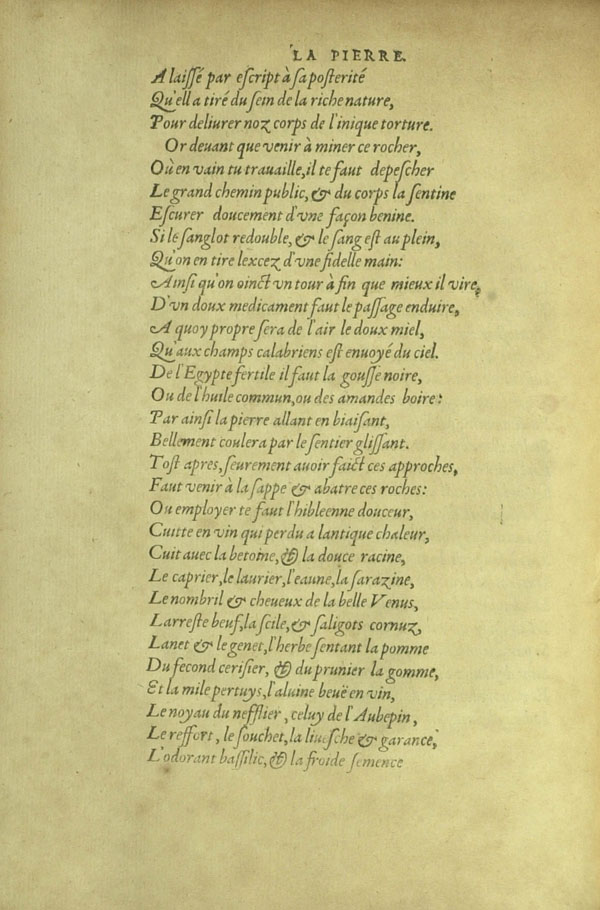 LA PIERRE.
A laiſſé par eſcript à ſa poſterité
Qu'ell a tiré du ſein de la riche nature,
Pour deliurer noz corps de l'inique torture.
Or deuant que venir à miner ce rocher,
Où en vain tu trauaille, il te faut depeſcher
Le grand chemin public, & du corps la ſentine
Eſcurer doucement d'vne façon benine.
Si le ſanglot redouble, & le ſang eſt au plein,
Qu'on en tire lexcez d'vne fidelle main:
Ainſi qu'on oinct vn tour à fin que mieux il vire,
D'vn doux medicament faut le paſſage enduire,
A quoy propre ſera de l'air le doux miel,
Qu'aux champs calabriens eſt enuoyé du ciel.
De l'Egypte fertile il faut la gouſſe noire,
Ou de l'huile commun, ou des amandes boire:
Par ainſi la pierre allant en biaiſant,
Bellement coulera par le ſentier gliſſant.
Toſt apres, ſeurement auoir faict ces approches,
Faut venir à la ſappe & abatre ces roches:
Ou employer te faut l'hibleenne douceur,
Cuitte en vin qui perdu a lantique chaleur,
Cuit auec la betoine, & la douce racine,
Le caprier, le laurier, l'eaune, la ſarazine,
Le nombril & cheueux de la belle Venus,
Larreſte beuf, la ſcile, & ſaligots cornuz,
Lanet & le genet, l'herbe ſentant la pomme
Du fecond ceriſier, & du prunier la gomme,
Et la mile pertuys, l'aluine beuë en vin,
Le noyau du nefflier, celuy de l'Aubepin,
Le reffort, le ſouchet, la liueſche & garance,
L'odorant baſſilic, & la froide ſemence